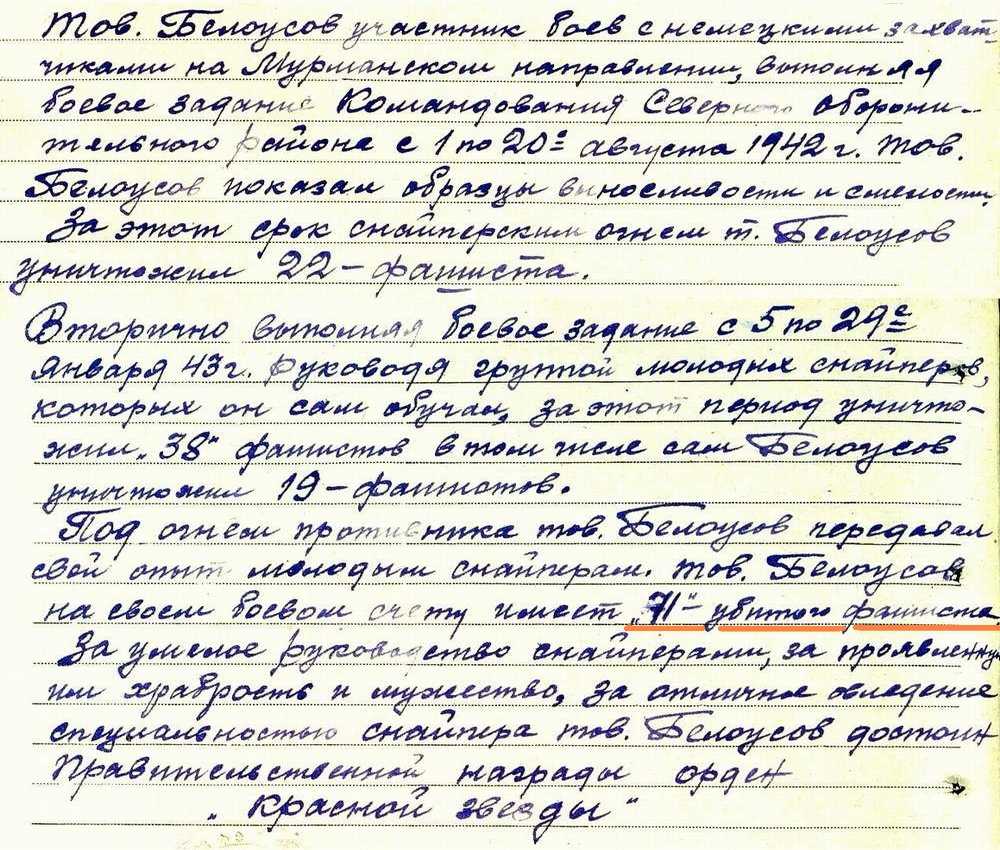 Тов. Белоусов участник боев с немецкими захват-
чиками на Мурманском направлении, выполняя
боевое задание Командования Северного оборони-
тельного района с 1 по 20е августа 1942 г. тов.
Белоусов показал образцы выносливости и смелости.
За этот срок снайперским огнем т. Белоусов
уничтожил 22 – фашиста.
Вторично выполняя боевое задание с 5 по 29е
января 43 г. руководя группой молодых снайперов,
которых он сам обучал, за этот период уничто-
жил „38" фашистов в том числе сам Белоусов
уничтожил 19 – фашистов.
Под огнем противника тов. Белоусов передавал
свой опыт молодым снайперам. тов. Белоусов
на своем боевом счету имеет „71" – убитого фашиста.
За умелое руководство снайперами, за проявленную
им храбрость и мужество, за отличное овладение
специальностью снайпера тов. Белоусов достоин
Правительственной награды орден
„Красной звезды"